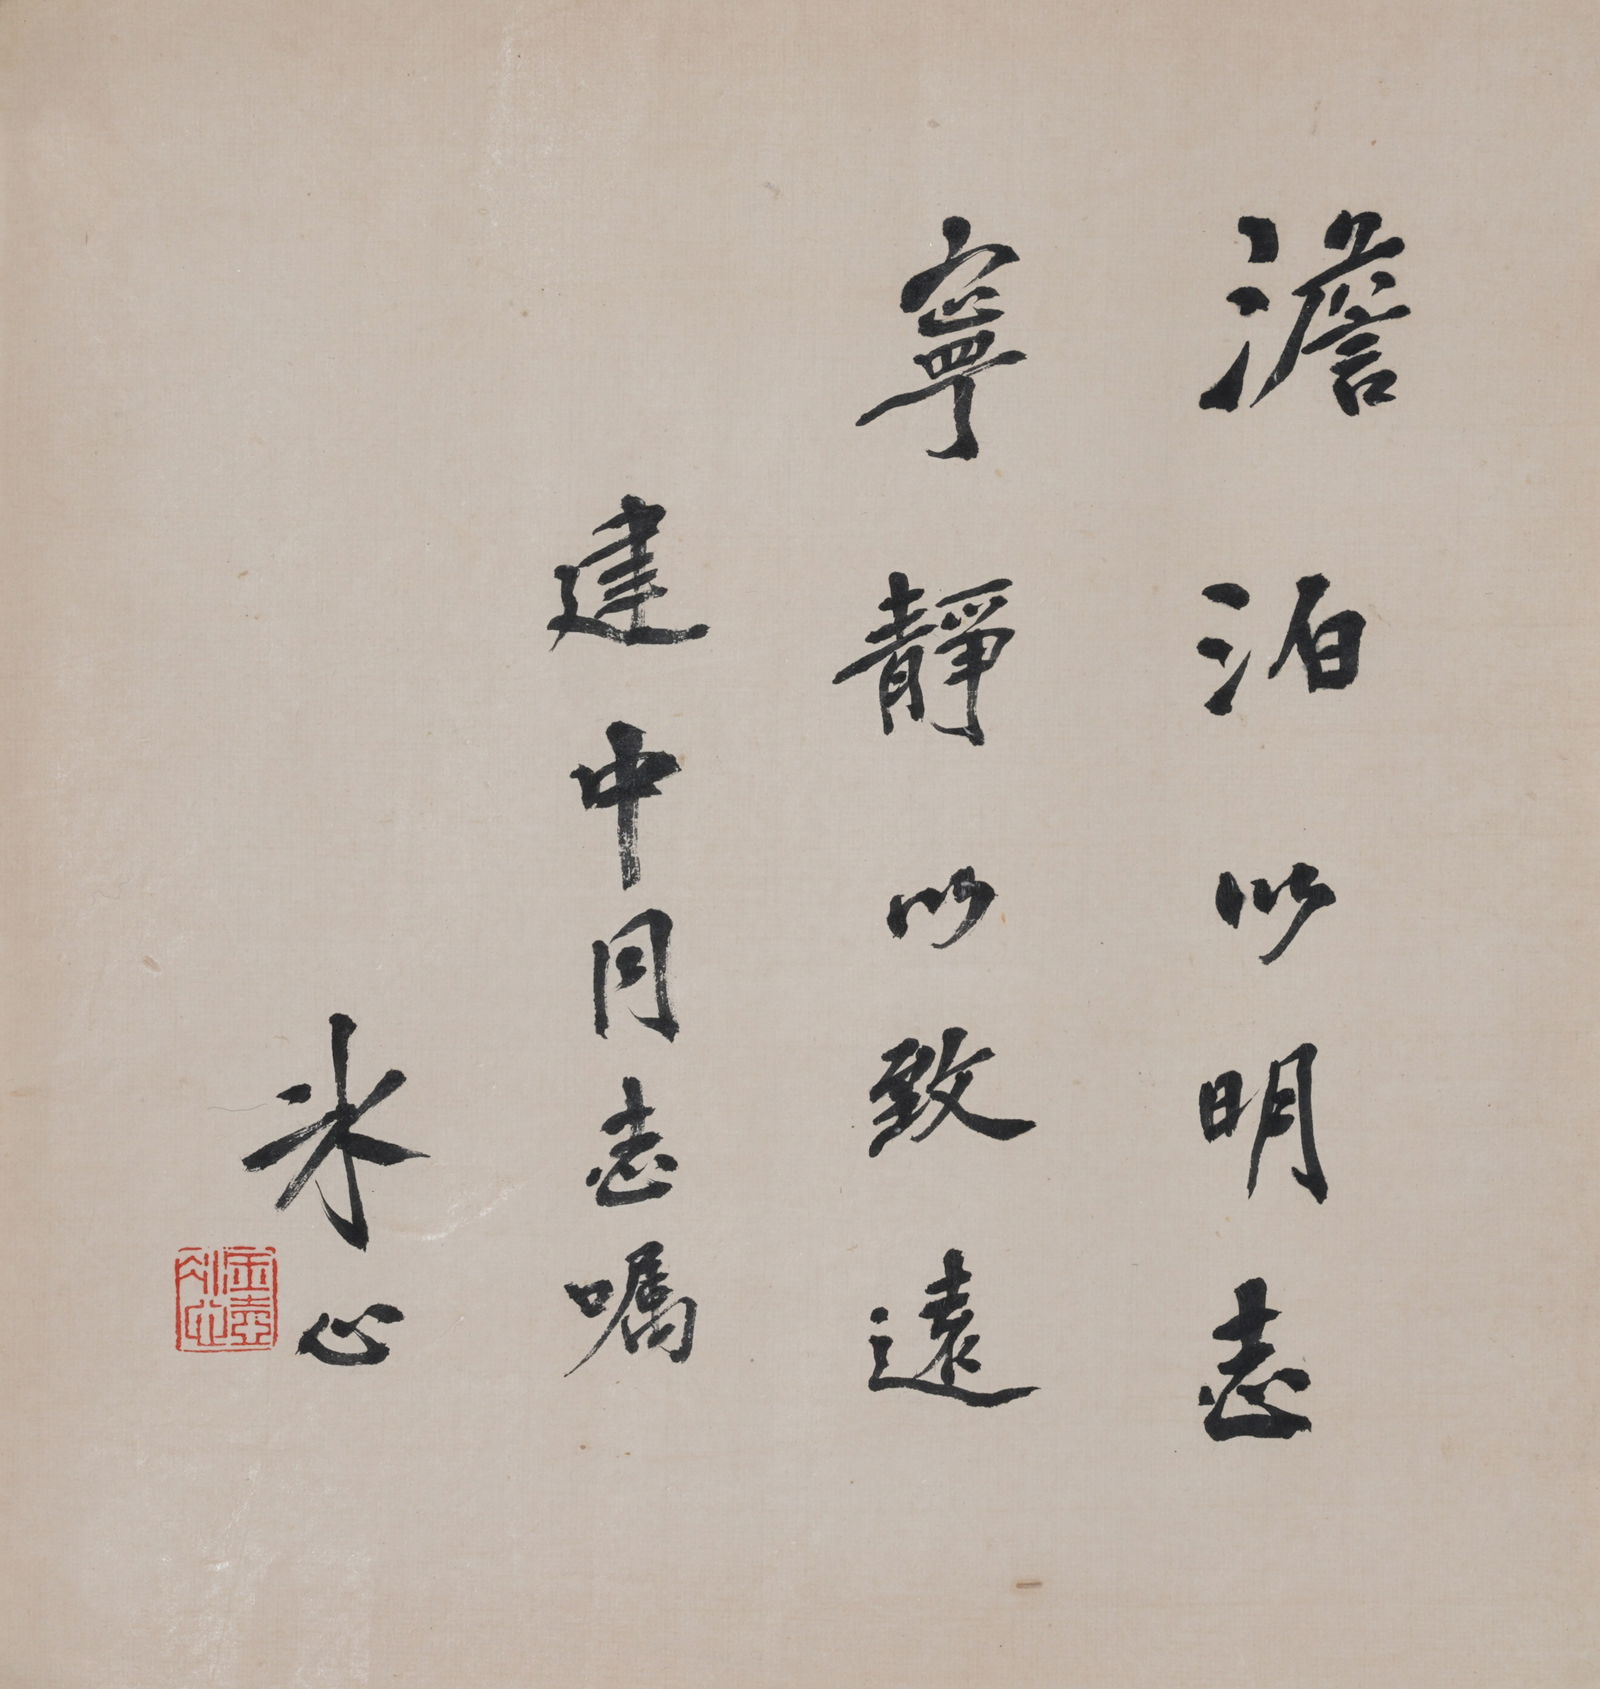 澹泊以明志
寧靜以致遠
建中同志嘱
冰心